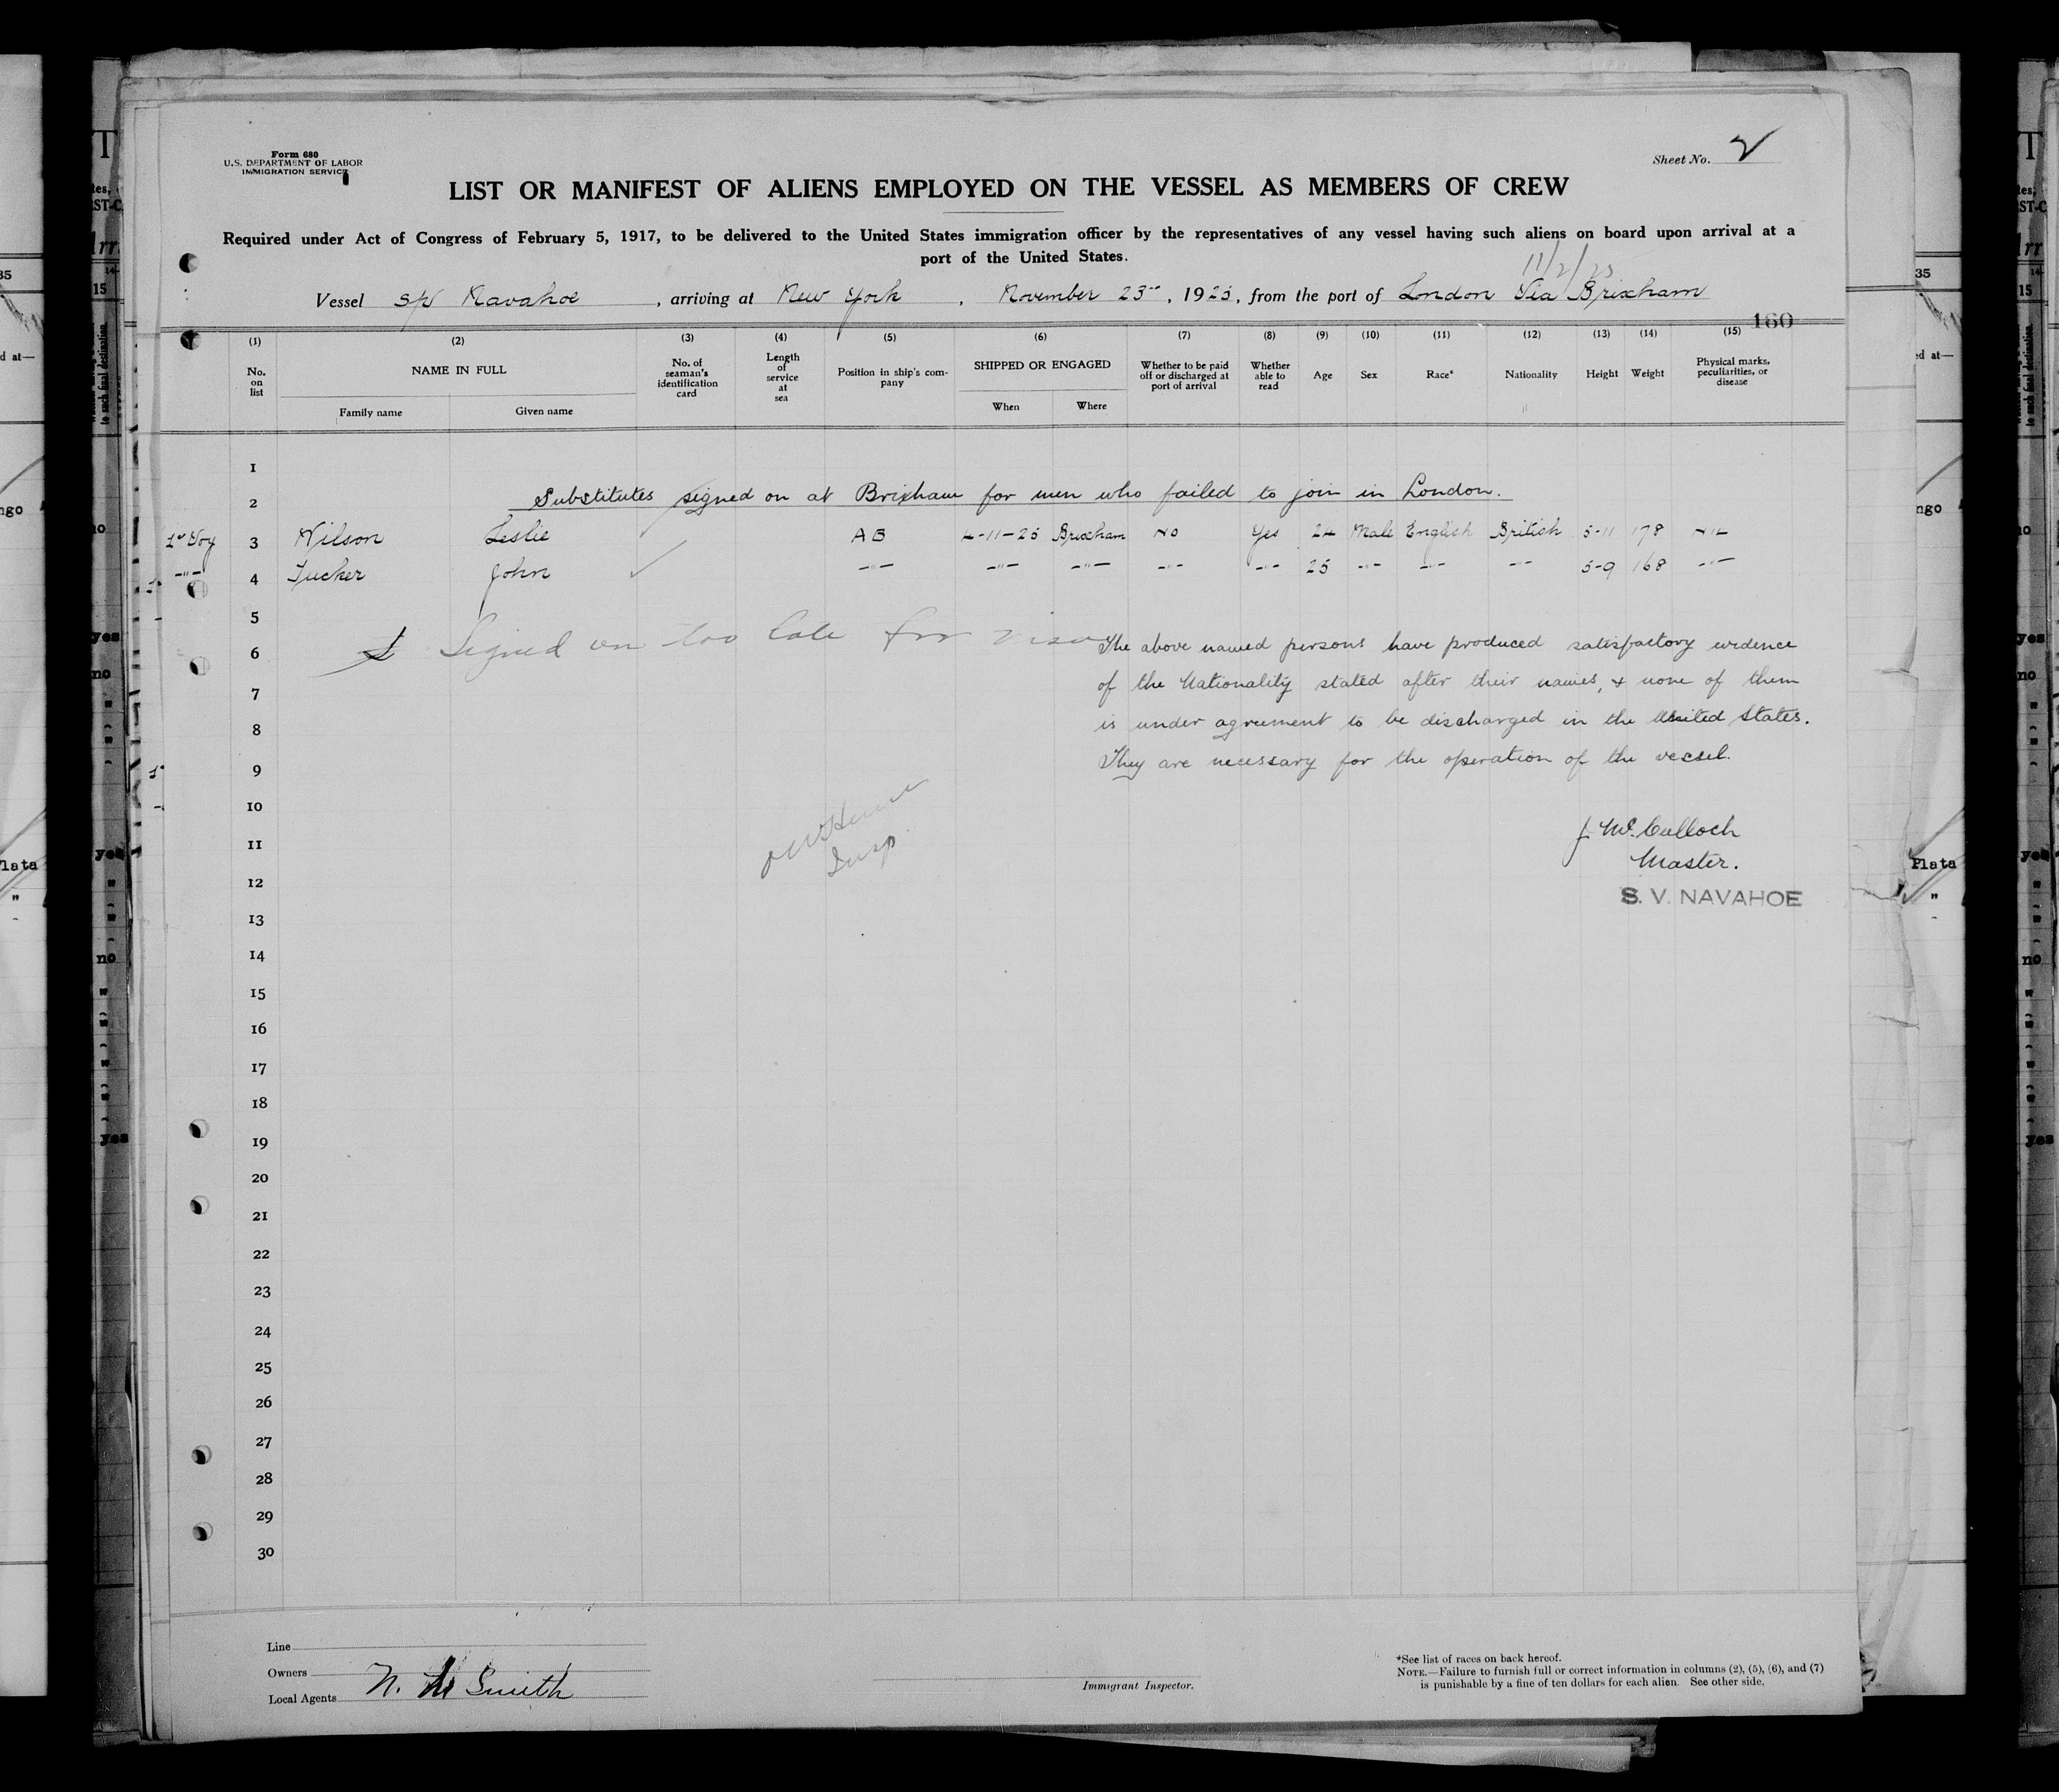 Form 680
U.S. DEPARTMENT OF LABOR
IMMIGRATION SERVICE
Sheet No. 2
LIST OR MANIFEST OF ALIENS EMPLOYED ON THE VESSEL AS MEMBERS OF CREW
Required under Act of Congress of February 5, 1917, to be delivered to the United States immigration officer by the representatives of any vessel having such aliens on board upon arrival at a
port of the United States.
Vessel Navahoe, arriving at New York, November 23rd, 1925, from the port of London Via Brixham
160
(1) (2) (3) (4) (5) (6) (7) (8) (9) (10) (11) (12) (13) (14) (15)
No. on list
NAME IN FULL
Family name Given name
No. of seaman's identification card
Length of service at sea
Position in ship's company
SHIPPED OR ENGAGED
When Where
Whether to be paid off or discharged at port of arrival
Whether able to read
Age
Sex
Race*
Nationality
Height
Weight
Physical marks, peculiarities, or disease
1
2 Substitutes signed on at Brixham for men who failed to join in London.
1st Voy 3 Wilson Leslie AB 4-11-25 Brixham No Yes 24 Male English British 5-11 178 Nil
-"- 4 Tucker John -"- -"- -"- -"- -"- 25 -"- -"- -"- 5-9 168 -"-
5
6 Signed on too late for visa
The above named persons have produced satisfactory evidence
7 of the Nationality stated after their names, & none of them
8 is under agreement to be discharged in the United States.
9 They are necessary for the operation of the vessel.
10
11 Insp
J McCulloch
Master.
12
S. V. NAVAHOE
13
14
15
16
17
18
19
20
21
22
23
24
25
26
27
28
29
30
Line
Owners
Local Agents N. M Smith
Immigrant Inspector.
*See list of races on back hereof.
NOTE.—Failure to furnish full or correct information in columns (2), (5), (6), and (7)
is punishable by a fine of ten dollars for each alien. See other side.